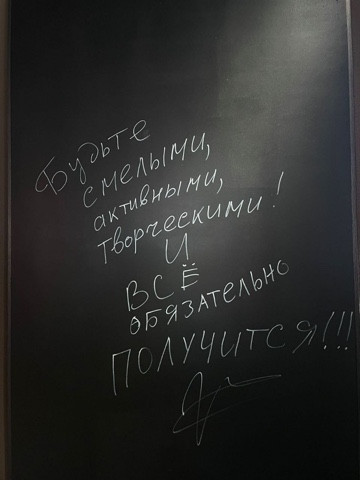 Будьте
смелыми,
активными,
творческими!
И
ВСЁ
ОБЯЗАТЕЛЬНО
ПОЛУЧИТСЯ!!!